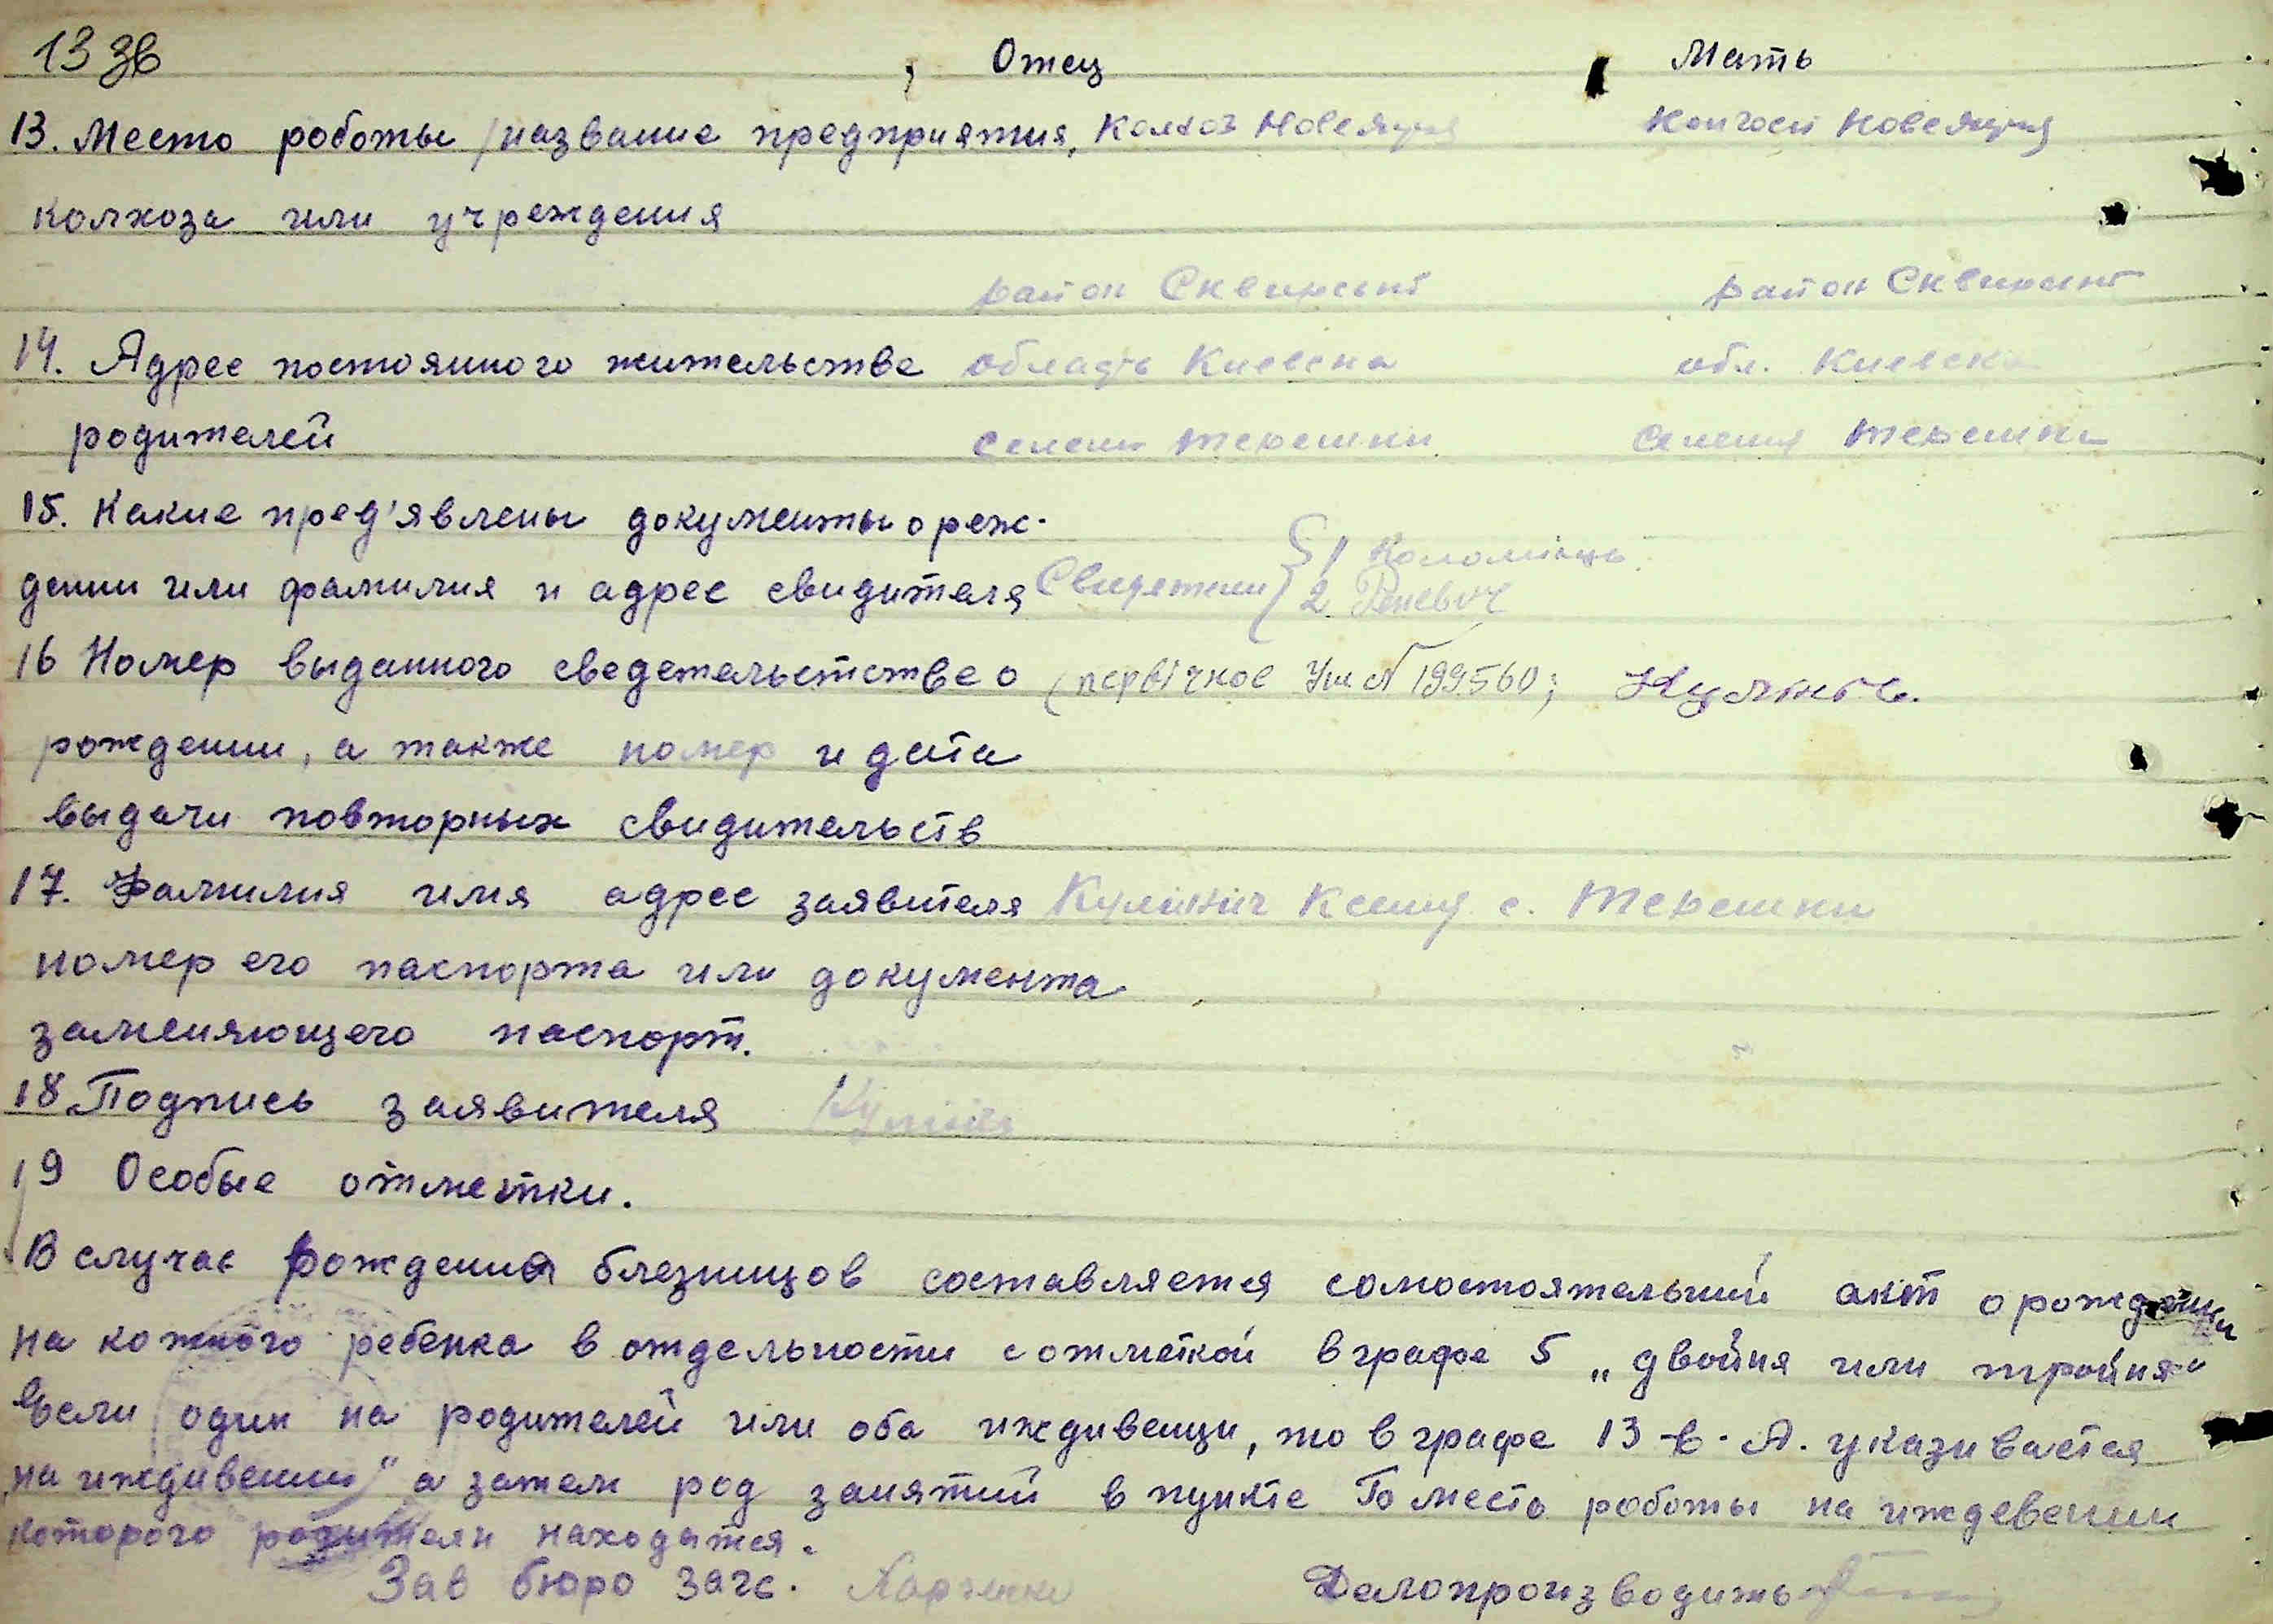 13 зв
Отец Мать
13. Место роботы /название предприятия, Колхоз Новемрия
колхоза или учреждения
район Сквирський район Сквирський
14. Адрес постоянного жительства область Киевска обл. Киевска
родителей селения Терешки селения Терешки
15. Какие пред'явлены документы о рож-
1 Коломиець
дении или фамилия и адрес свидителя Свидетели 2
16 Номер выданного сведетельстство о (первічное № 199560;
рождении, а также номер и дата
выдачи повторных свидительств
17. Фамилия имя адрес заявителя с. Терешки
номер его паспорта или документа
заменяющего паспорт.
18 Подпись заявителя
19 Особые отметки.
В случае рождения близницов составляется сомостоятельний акт о рождении
на кожного ребенка в отдельности с отметкой в графе 5 „двойня или тройня“
Если один на родителей или оба иждивенци, то в графе 13-в. А. указивается
„на иждивении" а затем род занятий в пункте Го место роботы на иждевении
которого родители находятся.
Зав бюро загс. Делопроизводить